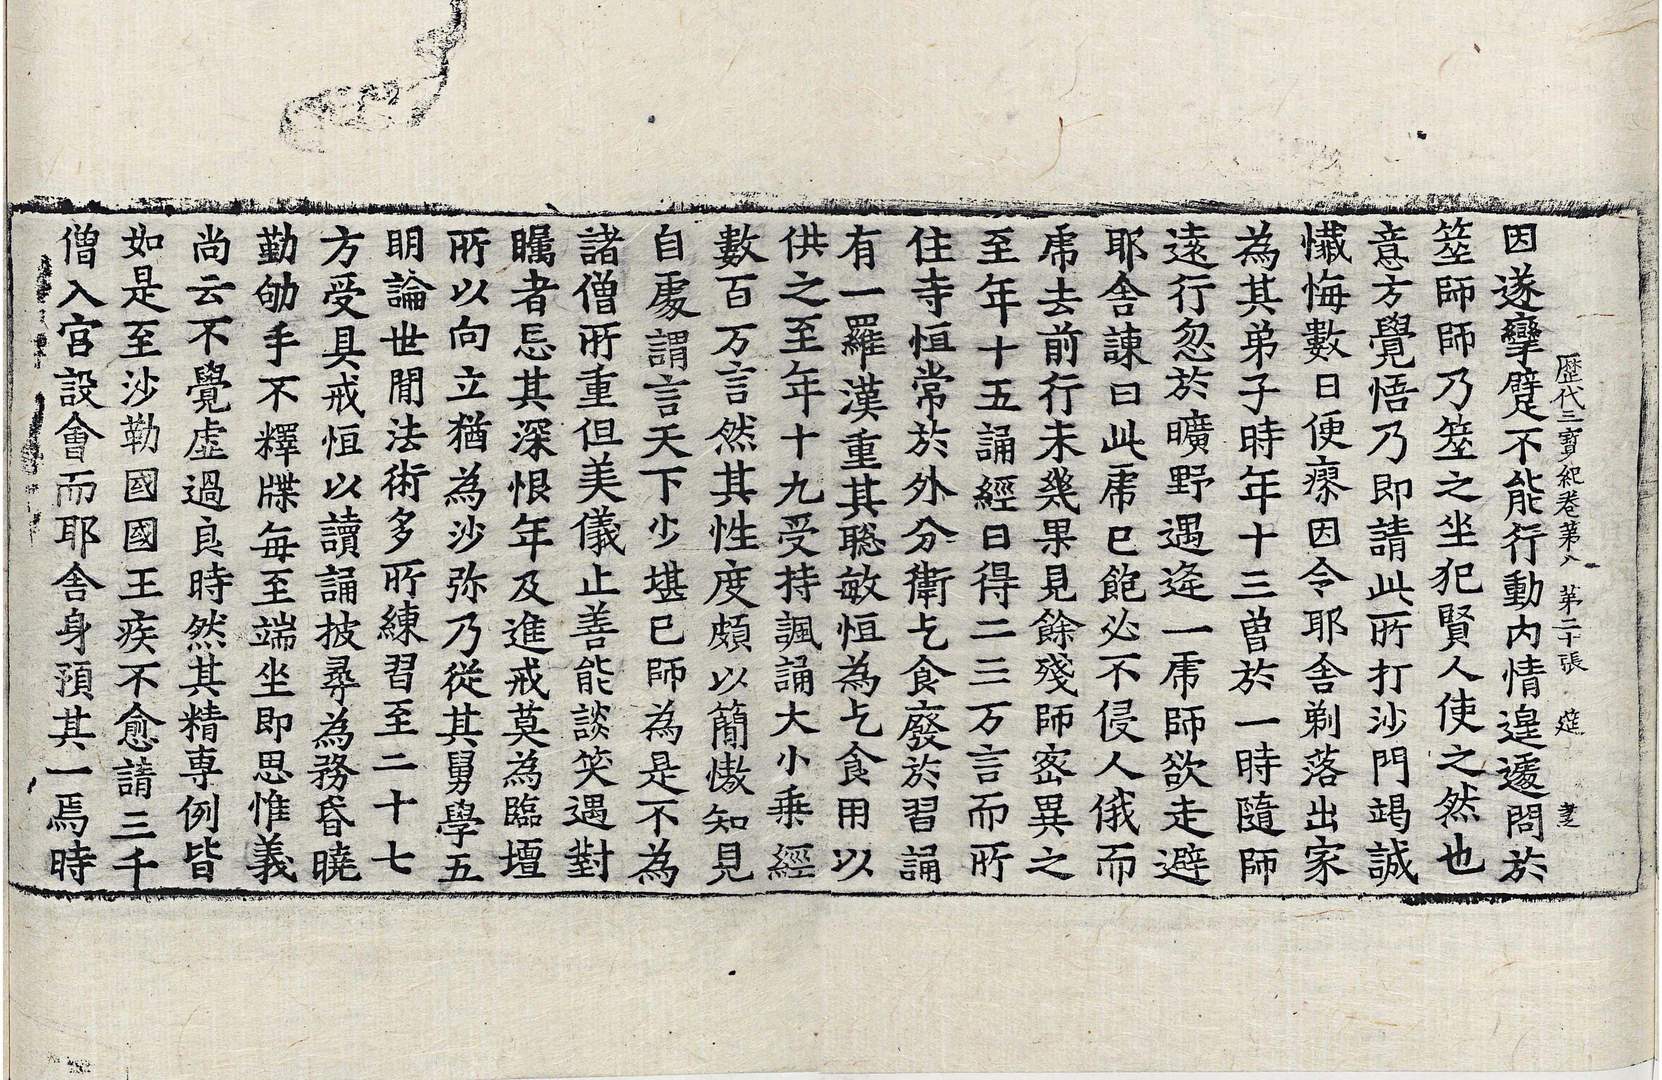 歷代三寶紀卷第八 第二十張 筵
因遂攣躄不能行動內情遑遽問於
筮師師乃筮之坐犯賢人使之然也
意方覺悟乃即請此所打沙門竭誠
懺悔數日便瘳因令耶舍剃落出家
為其弟子時年十三曾於一時隨師
遠行忽於曠野遇逢一虎師欲走避
耶舍諫曰此虎已飽必不侵人俄而
虎去前行未幾果見餘殘師密異之
至年十五誦經日得二三万言而所
住寺恒常於外分衛乞食廢於習誦
有一羅漢重其聡敏恒為乞食用以
供之至年十九受持諷誦大小乗經
數百万言然其性度頗以簡慠知見
自處謂言天下少堪己師為是不為
諸僧所重但美儀止善能談笑遇對
矚者忘其深恨年及進戒莫為臨壇
所以向立猶為沙弥乃從其舅學五
明論世閒法術多所練習至二十七
方受具戒恒以讀誦披尋為務昏曉
勤劬手不釋牒每至端坐即思惟義
尚云不覺虛過良時然其精專例皆
如是至沙勒國國王疾不愈請三千
僧入宮設會而耶舍身預其一焉時